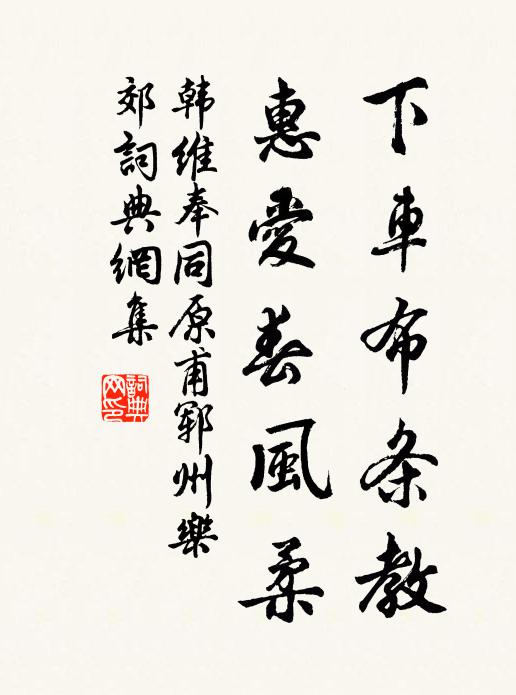 下車布条教
惠愛春風柔
韩維奉同原甫鄆州樂
郊詞典網集
詞典
网印